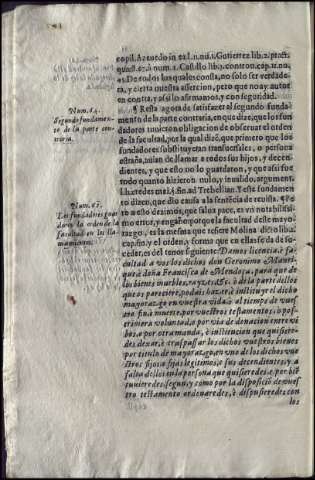 copil. Azeuedo in ex l. n. ii. Gutierrez lib. 2. pract.
quæst. 67. à num. 2. Castillo lib. 2. controu. cap. 22. nu.
De todos los quales consta, no solo ser verdade
ra, y cierta nuestra assercion, pero que no ay autor
en contra, y assi lo afirmamos, y con seguridad.
Num. 64.
Segundo fundamen-
to de la parte con-
traria.
¶ Resta agora de satisfazer al segundo funda-
mento de la parte contraria, en que dize, que los fun
dadores tuuieron obligacion de obseruar el orden
de la facultad, por la qual dize, que primero que los
fundadores substituyeran transuersales, o persona
estraña, auian de llamar a todos sus hijos, y decen-
dientes, y que esto no lo guardaron, y que assi fue
todo quanto hizieron nulo, y inualido, argument.
l. hæredes mei, §. fin. ad Trebellian. Y este fundamen
to dizen, que dio causa a la sentencia de reuista. ¶ Pe
Num. 65.
Los fundadores guar
daron la orden de la
facultad en los lla-
mamientos.
ro a esto dezimos, que salua pace, es vn notabilissi-
mo error, y engaño: porque la facultad deste mayo-
razgo, es la mesma que refiere Molina dicto lib. 2.
cap. fin. y el orden, y forma que en ella se da de su-
ceder, es del tenor siguiente: Damos licencia, è fa-
cultad a vos los dichos don Geronimo Manri-
que è doña Francisca de Mendoça, para que de
los bienes muebles, rayzes, &c. ò de la parte dellos
que os pareciere, podais hazer, è instituyr el dicho
mayorazgo en vuestra vida, ò al tiempo de vues-
tro fin, è muerte, por vuestros testamentos, ò pos-
trimera voluntad, o por via de donacion entre vi-
bos, ò por otra manda, è institucion que quisiere-
des, dexar, è traspassar los dichos vuestros bienes
por titulo de mayorazgo, en vno de los dichos vues
tros fijos, o fijas legitimos, o sus decendientes, y a
falta dellos en la persona que quisieredes, è por biē
tuuieredes, segun, y como por la disposiciō de vues
tro testamento ordenaredes, è dispusieredes, con
los